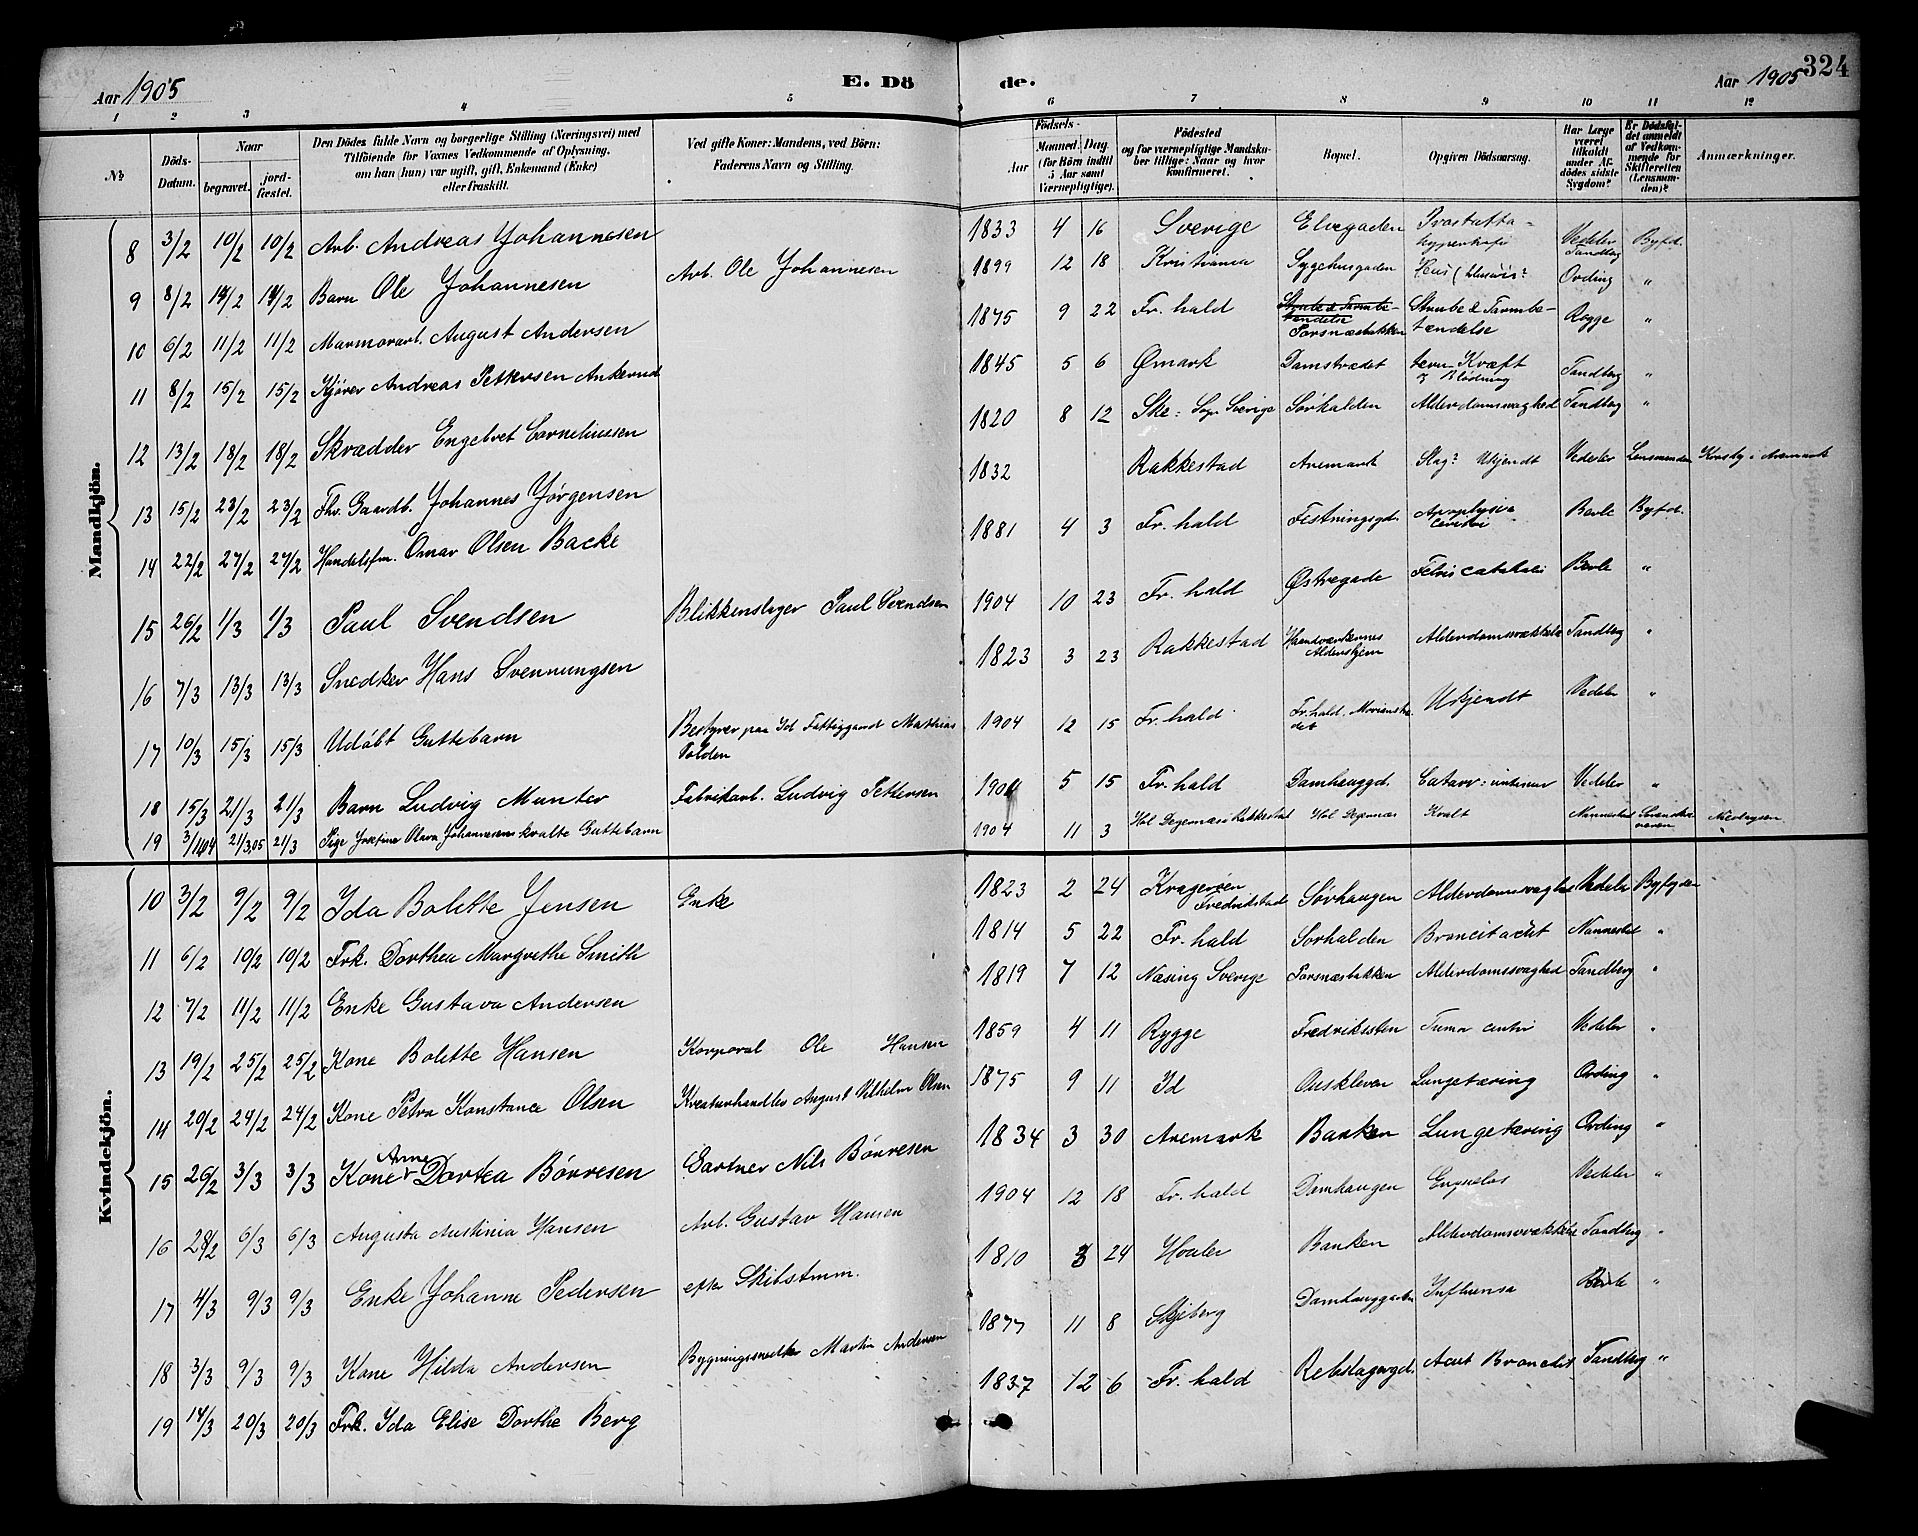 Aar 1905
E. Dö
de.
Aar 1905
324
1 2 3 4 5 6 7 8 9 10 11 12
№
Döds-Datum.
Naar
begravet.
jordfæstet.
Den Dödes fulde Navn og borgerlige Stilling (Næringsvei) med
Tilföiende for Voxnes Vedkommende af Oplysning,
om han (hun) var ugift, gift, Enkemand (Enke)
eller fraskilt.
Ved gifte Koner: Mandens, ved Börn:
Faderens Navn og Stilling.
Födsels-
Aar
Maaned. Dag.
(for Börn indtil
5 Aar samt
Værnepligtige).
Födested
og for værnepligtige Mandskaber tillige: Naar og hvor
konfirmeret.
Bopæl.
Opgiven Dödsaarsag.
Har Læge
været
tilkaldt
under Afdödes sidste
Sygdom?
Er Dödsfaldet anmeldt
af Vedkommende for
Skifteretten
(Lensmanden)?
Anmærkninger.
Mandkjön.
8 3/2 10/2 10/2 Arb. Andreas Johannesen 1833 4 16 Sverige Elvegaden Prostatta- Vedeler Tandberg Byfd.
9 8/2 14/2 14/2 Barn Ole Johannesen Arb. Ole Johannesen 1899 12 18 Kristiania Sygehusgaden Ording "
10 6/2 11/2 11/2 Marmorarb. August Andersen 1875 9 22 Fr. hald Porsnæsbakken Strube & Tarmbetændelse Rogge "
11 8/2 15/2 15/2 Kjører Andreas Pettersen Ankerud 1845 5 6 Ømark Damstrædet Kræft & Blödning Tandberg "
12 13/2 18/2 18/2 Skrædder Engebret Corneliussen 1820 8 12 Ske: Sogn Sverige Sørhalden Alderdomssvaghed Tandberg "
13 15/2 23/2 23/2 Fhv. Gaardb. Johannes Jørgensen 1832 Rakkestad Aremark Slag? Ukjendt Vedeler Lensmanden Krosby i Aremark
14 22/2 27/2 27/2 Handelsfm. Omar Olsen Backe 1881 4 3 Fr. hald Festningsgd. Berle Byfd.
15 26/2 1/3 1/3 Paul Svendsen Blikkenslager Paul Svendsen 1904 10 23 Fr. hald Østregade Febris catarhalis Berle "
16 7/3 13/3 13/3 Snedker Hans Svennungsen 1823 3 23 Rakkestad Haandværkernes Aldershjem Alderdomssvækkelse Tandberg "
17 10/3 15/3 15/3 Udøbt Guttebarn Bestyrer paa Id Fattiggaard Mathias Volden 1904 12 15 Fr. hald Fr. hald. Ukjendt Vedeler "
18 15/3 21/3 21/3 Barn Ludvig Munter Fabrikarb. Ludvig Pettersen 1904 5 15 Fr. hald Damhauggd. Catarr: intestinar Vedeler "
19 3/11 04 21/3.05 21/3 Pige Josefine Olava Johannesens kvalte Guttebarn 1904 11 3 Hol Degernæs Rakkestad Hol Degernæs Kvalt Nannestad Nicolaysen
Kvindekjön.
10 3/2 9/2 9/2 Ida Bolette Jensen Enke 1823 2 24 Kragerøen Fredrikstad Sørhaugen Alderdomssvaghed Vedeler Byfogden
11 6/2 10/2 10/2 Frk. Dorthea Margrethe Smith 1814 5 22 Fr. hald Sørhalden Broncit acut Nannestad "
12 7/2 11/2 11/2 Enke Gustava Andersen 1819 7 12 Næsing Sverige Porsnæsbakken Alderdomssvaghed Tandberg "
13 19/2 25/2 25/2 Kone Bolette Hansen Korporal Ole Hansen 1859 4 11 Rygge Fredriksten Vedeler "
14 20/2 24/2 24/2 Kone Petra Konstance Olsen Kreaturhandler August Vilhelm Olsen 1875 9 11 Id Ouskleven Lungetæring Ording "
15 26/2 3/3 3/3 Kone Anne Dortea Børresen Gartner Nils Børresen 1834 3 30 Aremark Banken Lungetæring Ording "
16 28/2 6/3 6/3 Augusta Austinia Hansen Arb. Gustav Hansen 1904 12 18 Fr. hald Damhaugen Vedeler "
17 4/3 9/3 9/3 Enke Johanne Pedersen efter Skibstmm. 1810 3 24 Hvaler Banken Alderdomssvækkelse Tandberg "
18 3/3 9/3 9/3 Kone Hilda Andersen Bygningssnedker Martin Andersen 1877 11 8 Skjeberg Damhauggaden Influensa Berle "
19 14/3 20/3 20/3 Frk. Ida Elise Dorthe Berg 1837 12 6 Fr. hald Rebslagergd. Acut Bronchit Tandberg "